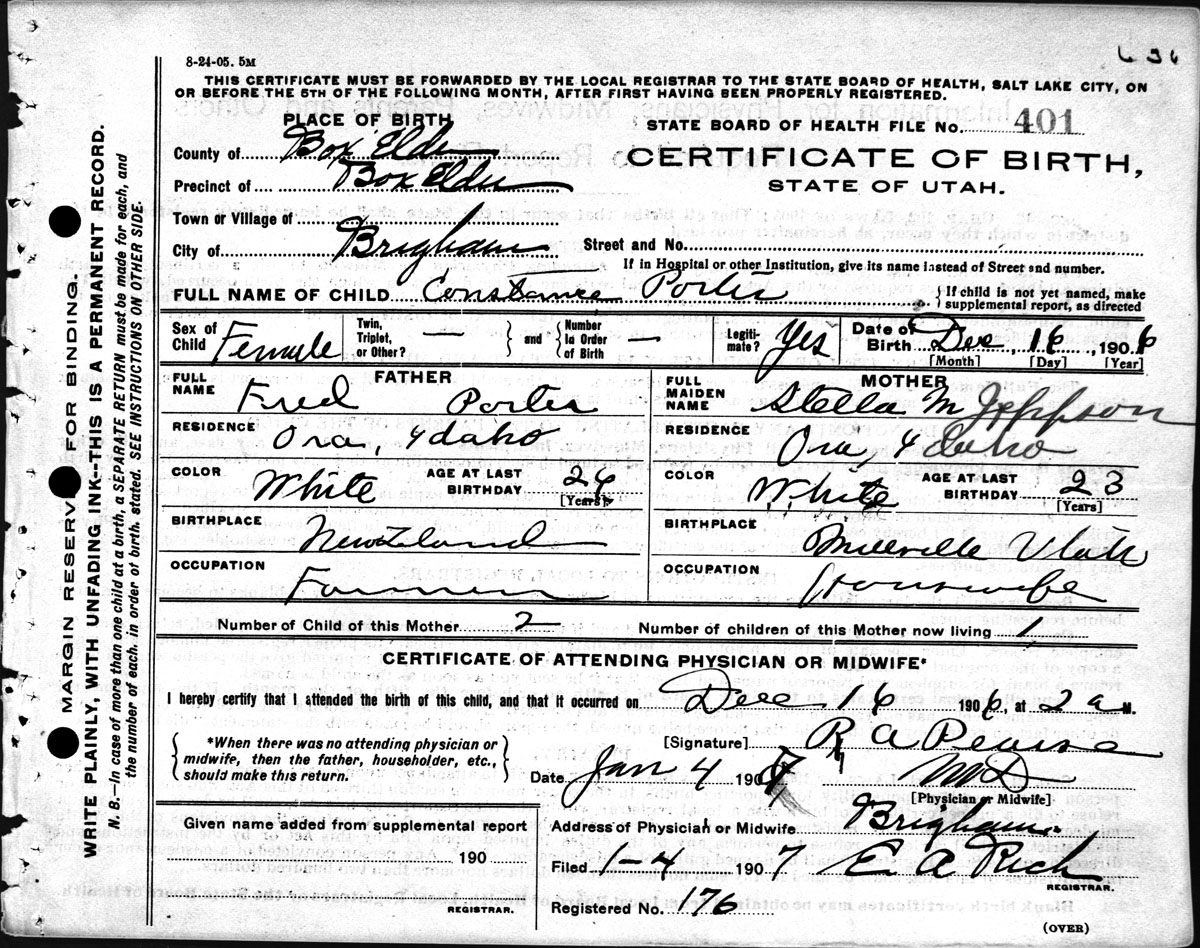 636
8-24-05. 5M
THIS CERTIFICATE MUST BE FORWARDED BY THE LOCAL REGISTRAR TO THE STATE BOARD OF HEALTH, SALT LAKE CITY, ON
OR BEFORE THE 5TH OF THE FOLLOWING MONTH, AFTER FIRST HAVING BEEN PROPERLY REGISTERED.
PLACE OF BIRTH
STATE BOARD OF HEALTH FILE No. 401
County of Box Elder
CERTIFICATE OF BIRTH,
Precinct of Box Elder
STATE OF UTAH.
Town or Village of
City of Brigham
Street and No.
If in Hospital or other Institution, give its name instead of Street and number.
FULL NAME OF CHILD Constance Porter
If child is not yet named, make
supplemental report, as directed
Sex of Child Female
Twin, Triplet, or Other? —
and Number In Order of Birth —
Legiti-mate? Yes
Date of Birth Dec, 16, 1906
[Month] [Day] [Year]
FATHER
FULL NAME Fred Porter
RESIDENCE Ora, Idaho
COLOR White
AGE AT LAST BIRTHDAY 24
[Years]
BIRTHPLACE New Zeland
OCCUPATION Farmer
MOTHER
FULL MAIDEN NAME Stella M Jeppson
RESIDENCE Ora, Idaho
COLOR White
AGE AT LAST BIRTHDAY 23
[Years]
BIRTHPLACE Millville Utah
OCCUPATION Housewife
Number of Child of this Mother 2
Number of children of this Mother now living 1
CERTIFICATE OF ATTENDING PHYSICIAN OR MIDWIFE*
I hereby certify that I attended the birth of this child, and that it occurred on Dec 16 1906, at 2 a M.
*When there was no attending physician or
midwife, then the father, householder, etc.,
should make this return.
[Signature] R A Pearse
Date Jan 4 1907 MD
[Physician or Midwife]
Given name added from supplemental report
190
REGISTRAR.
Address of Physician or Midwife Brigham
Filed 1-4 1907 E. A Rich
REGISTRAR.
Registered No. 176
(OVER)
MARGIN RESERVED FOR BINDING.
WRITE PLAINLY, WITH UNFADING INK--THIS IS A PERMANENT RECORD.
N. B.—In case of more than one child at a birth, a SEPARATE RETURN must be made for each, and
the number of each, in order of birth, stated. SEE INSTRUCTIONS ON OTHER SIDE.